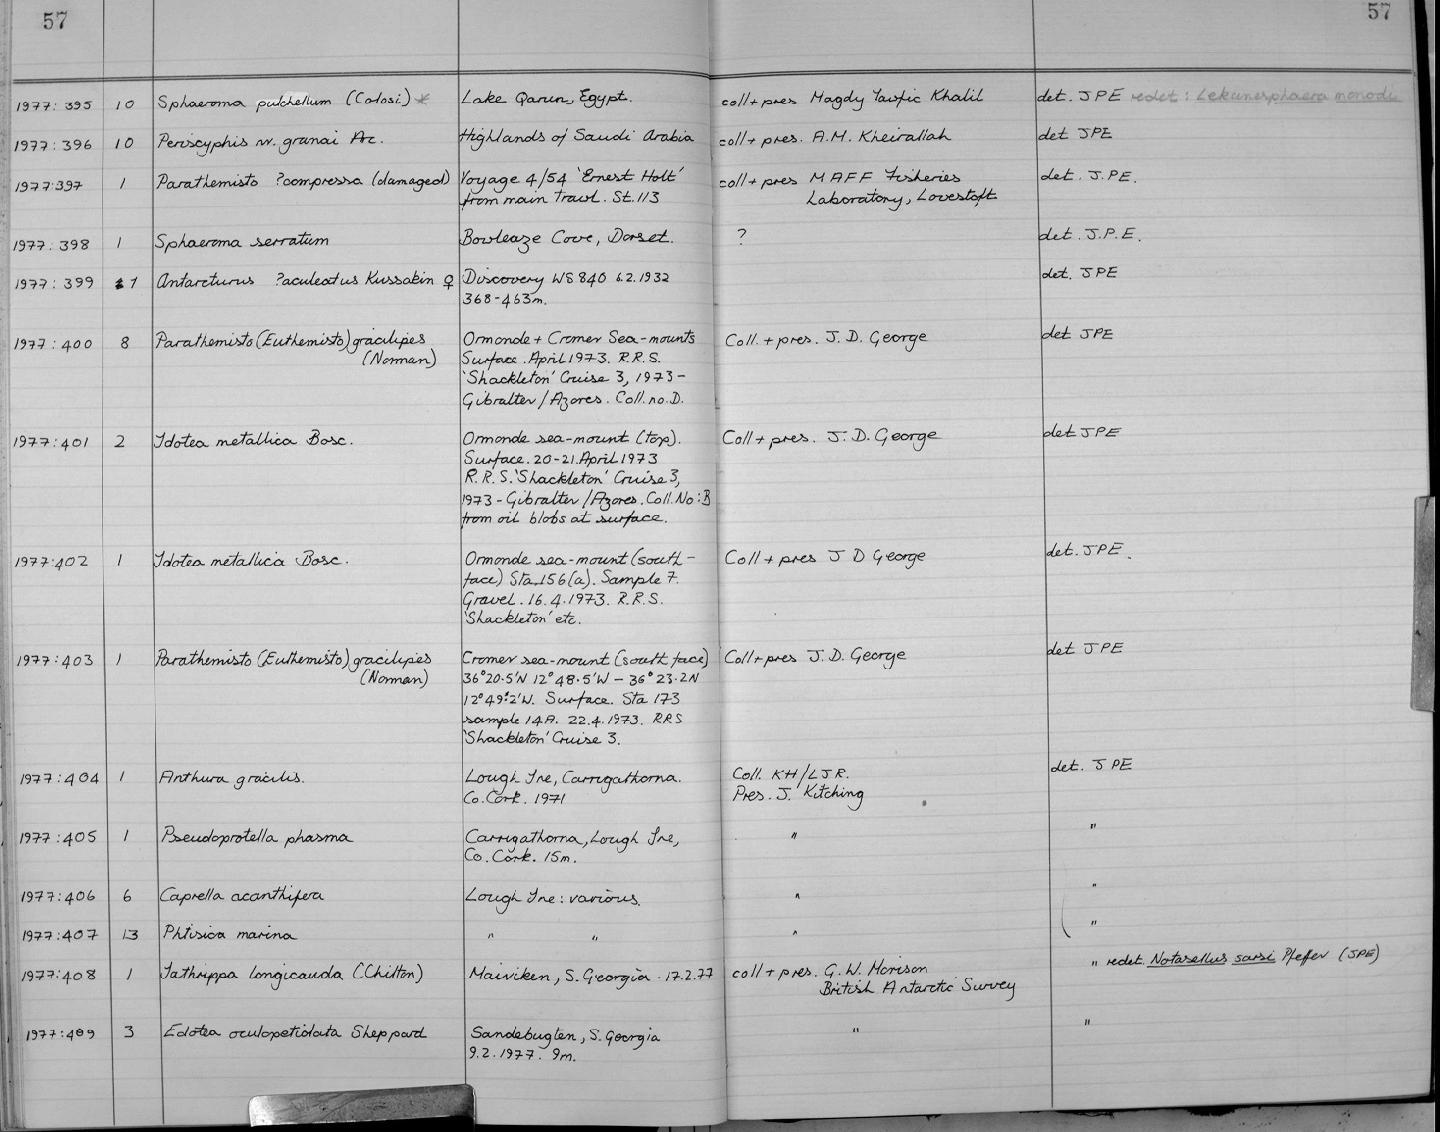 57
57
1977:395 10 Sphaeroma pulchellum (Colosi) * Lake Qarun, Egypt. coll + pres Magdy Tawfic Khalil det. JPE redet: Lekanesphaera monodi
1977:396 10 Periscyphis nr. granai Arc. Highlands of Saudi Arabia coll + pres. A.M. Kheirallah det JPE
1977:397 1 Parathemisto ?compressa (damaged) Voyage 4/54 'Ernest Holt' coll + pres MAFF Fisheries det. J.PE.
from main Trawl. St. 113 Laboratory, Lovestoft
1977:398 1 Sphaeroma serratum Bowleaze Cove, Dorset. ? det. J.P.E.
1977:399 1 Antarcturus ?aculeatus Kussakin ♀ Discovery WS 840 6.2.1932 det. JPE
368-463m.
1977:400 8 Parathemisto (Euthemisto) gracilipes Ormonde + Cromer Sea-mounts Coll. + pres. J.D. George det JPE
(Norman) Surface. April 1973. R.R.S.
'Shackleton' Cruise 3, 1973-
Gibralter/Azores. Coll. no. D.
1977:401 2 Idotea metallica Bosc. Ormonde sea-mount (top). Coll + pres. J.D. George det JPE
Surface. 20-21. April 1973
R.R.S. 'Shackleton' Cruise 3,
1973-Gibralter/Azores. Coll. No: B
from oil blobs at surface.
1977:402 1 Idotea metallica Bosc. Ormonde sea-mount (south- Coll + pres J D George det. JPE.
face) Sta. 156(a). Sample 7.
Gravel. 16.4.1973. R.R.S.
'Shackleton' etc.
1977:403 1 Parathemisto (Euthemisto) gracilipes Cromer sea-mount (south face) Coll + pres J.D. George det JPE
(Norman) 36°20.5'N 12°48.5'W - 36°23.2N
12°49.2'W. Surface. Sta 173
sample 14A. 22.4.1973. RRS
'Shackleton' Cruise 3.
1977:404 1 Anthura gracilis. Lough Ine, Carrigathorna. Coll. KH/LJR. det. JPE
Co. Cork. 1971 Pres. J. Kitching
1977:405 1 Pseudoprotella phasma Carrigathorna, Lough Ine, " "
Co. Cork. 15m.
1977:406 6 Caprella acanthifera Lough Ine: various. " "
1977:407 13 Phtisica marina " " " "
1977:408 1 Iathrippa longicauda (Chilton) Maiviken, S. Georgia. 17.2.77 coll + pres. G.W. Morison " redet. Notasellus sarsi Pfeffer (JPE)
British Antarctic Survey
1977:409 3 Edotea oculopetiolata Sheppard Sandebugten, S. Georgia " "
9.2.1977. 9m.